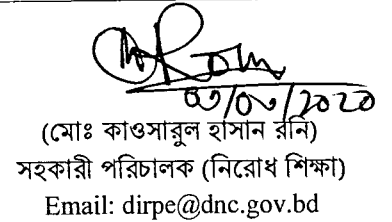 ০৩/০৯/২০২০
(মোঃ কাওসারুল হাসান রনি)
সহকারী পরিচালক (নিরোধ শিক্ষা)
Email: dirpe@dnc.gov.bd